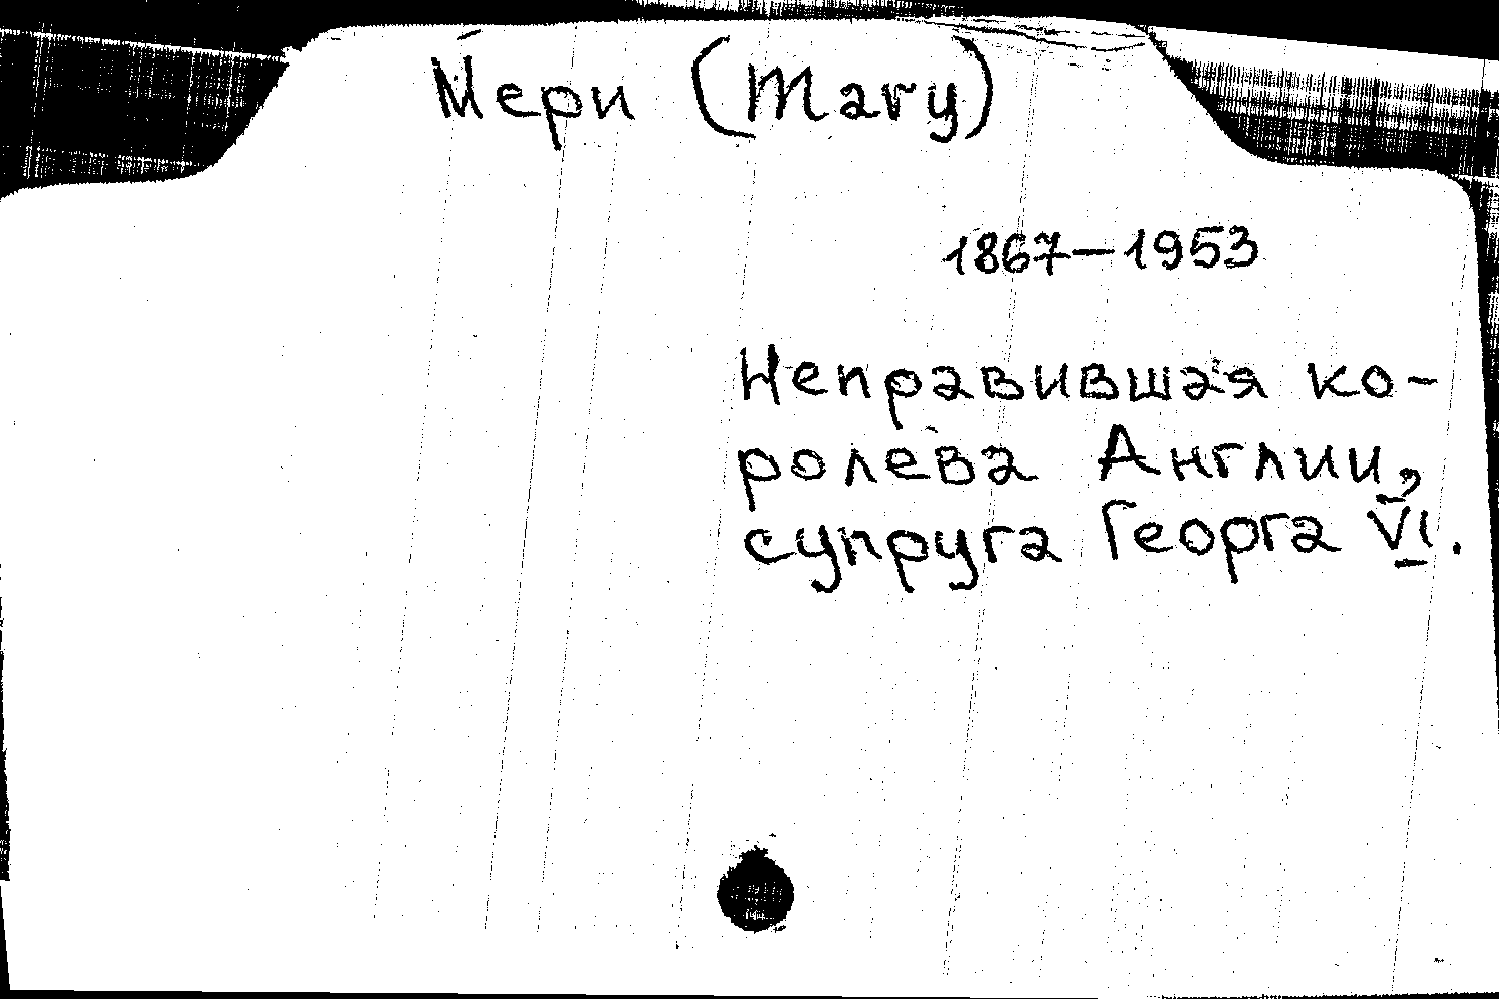 Мери (Mary)
1867—1953
Неправившая ко-
ролева Англии,
супруга Георга VI.